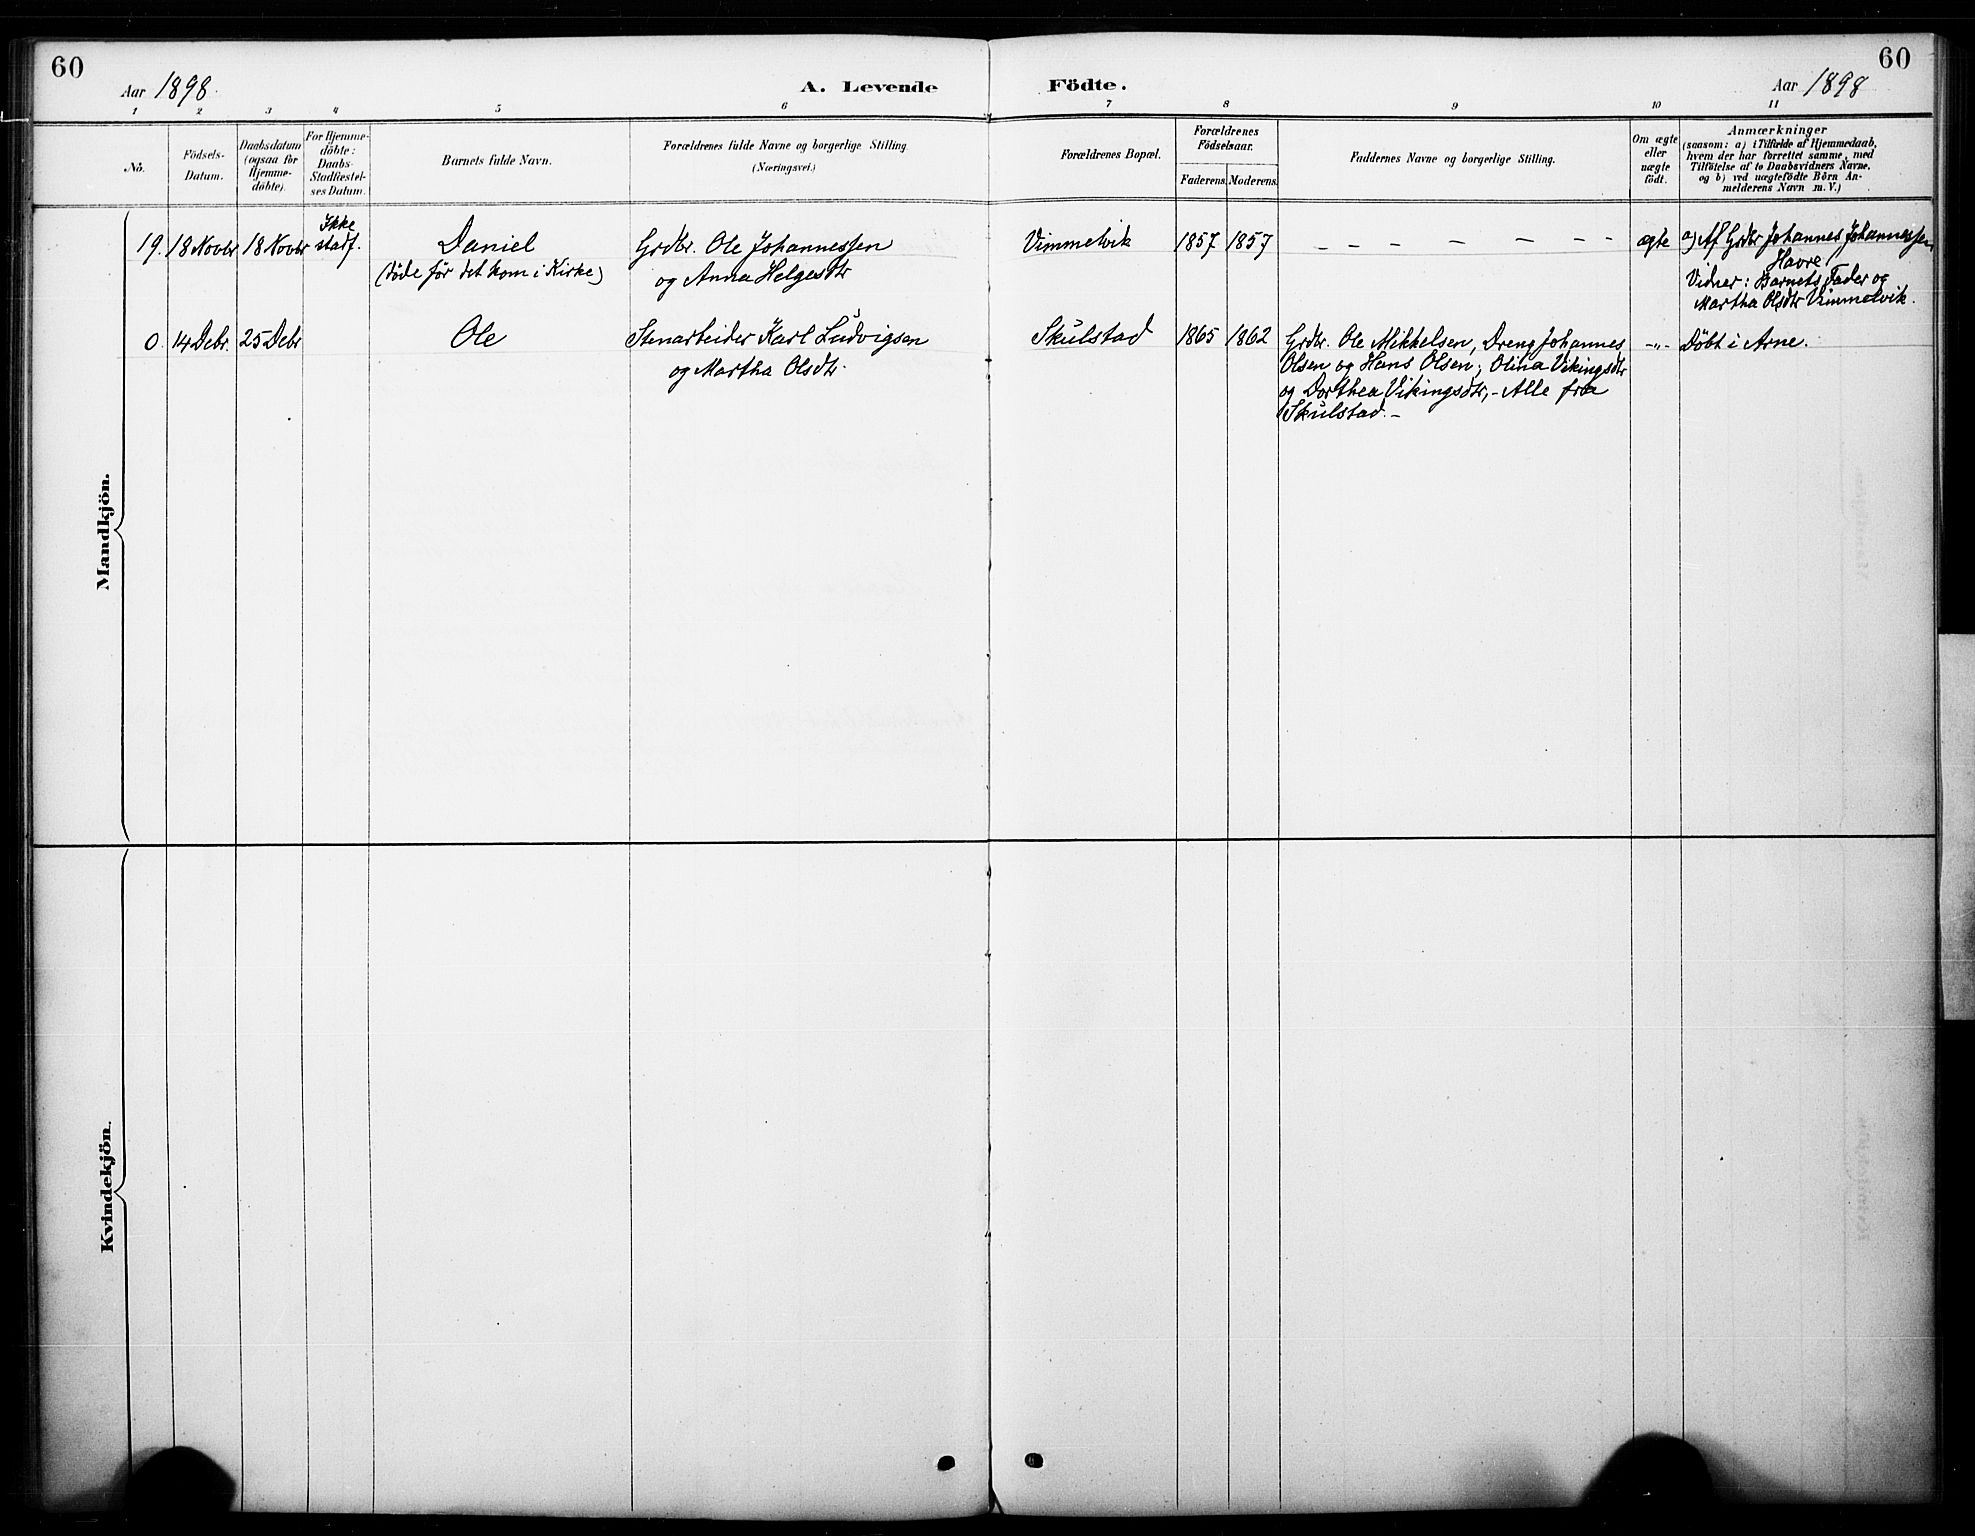 60
Aar 1898.
A. Levende Födte.
Aar 1898
60
1 2 3 4 5 6 7 8 9 10 11
No.
Födsels-
Datum.
Daabsdatum
(ogsaa for
Hjemme-
döbte).
For Hjemme-
döbte:
Daabs-
Stadfæstel-
ses Datum.
Barnets fulde Navn.
Forældrenes fulde Navne og borgerlige Stilling.
(Næringsvei.)
Forældrenes Bopæl.
Forældrenes
Födselsaar.
Faderens. Moderens.
Faddernes Navne og borgerlige Stilling.
Om ægte
eller
uægte
födt.
Anmærkninger
(saasom: a) i Tilfælde af Hjemmedaab,
hvem der har forrettet samme, med
Tilföielse af to Daabsvidners Navne,
og b) ved uægtefödte Börn An-
melderens Navn m. V.)
Mandkjön.
19. 18 Novbr 18 Novbr
Ikke
stadf.
Daniel
(døde før det kom i Kirke)
Grdbr. Ole Johannessen
og Anna Helgesdtr
Vimmelvik 1857 1857 – – – – – – – – ægte
a) Af Grdbr Johannes Johannessen
Havre /
Vidner: Barnets Fader og
Martha Olsdtr Vimmelvik.
0 14 Debr. 25 Debr
Ole
Stenarbeider Karl Ludvigsen
og Martha Olsdtr.
Skulstad 1865 1862
Grdbr. Ole Mikkelsen, Dreng Johannes
Olsen og Hans Olsen; Olina Vikingsdtr
og Dorthea Vikingsdtr, – Alle fra
Skulstad. –
–"– Döbt i Arne.
Kvindekjön.